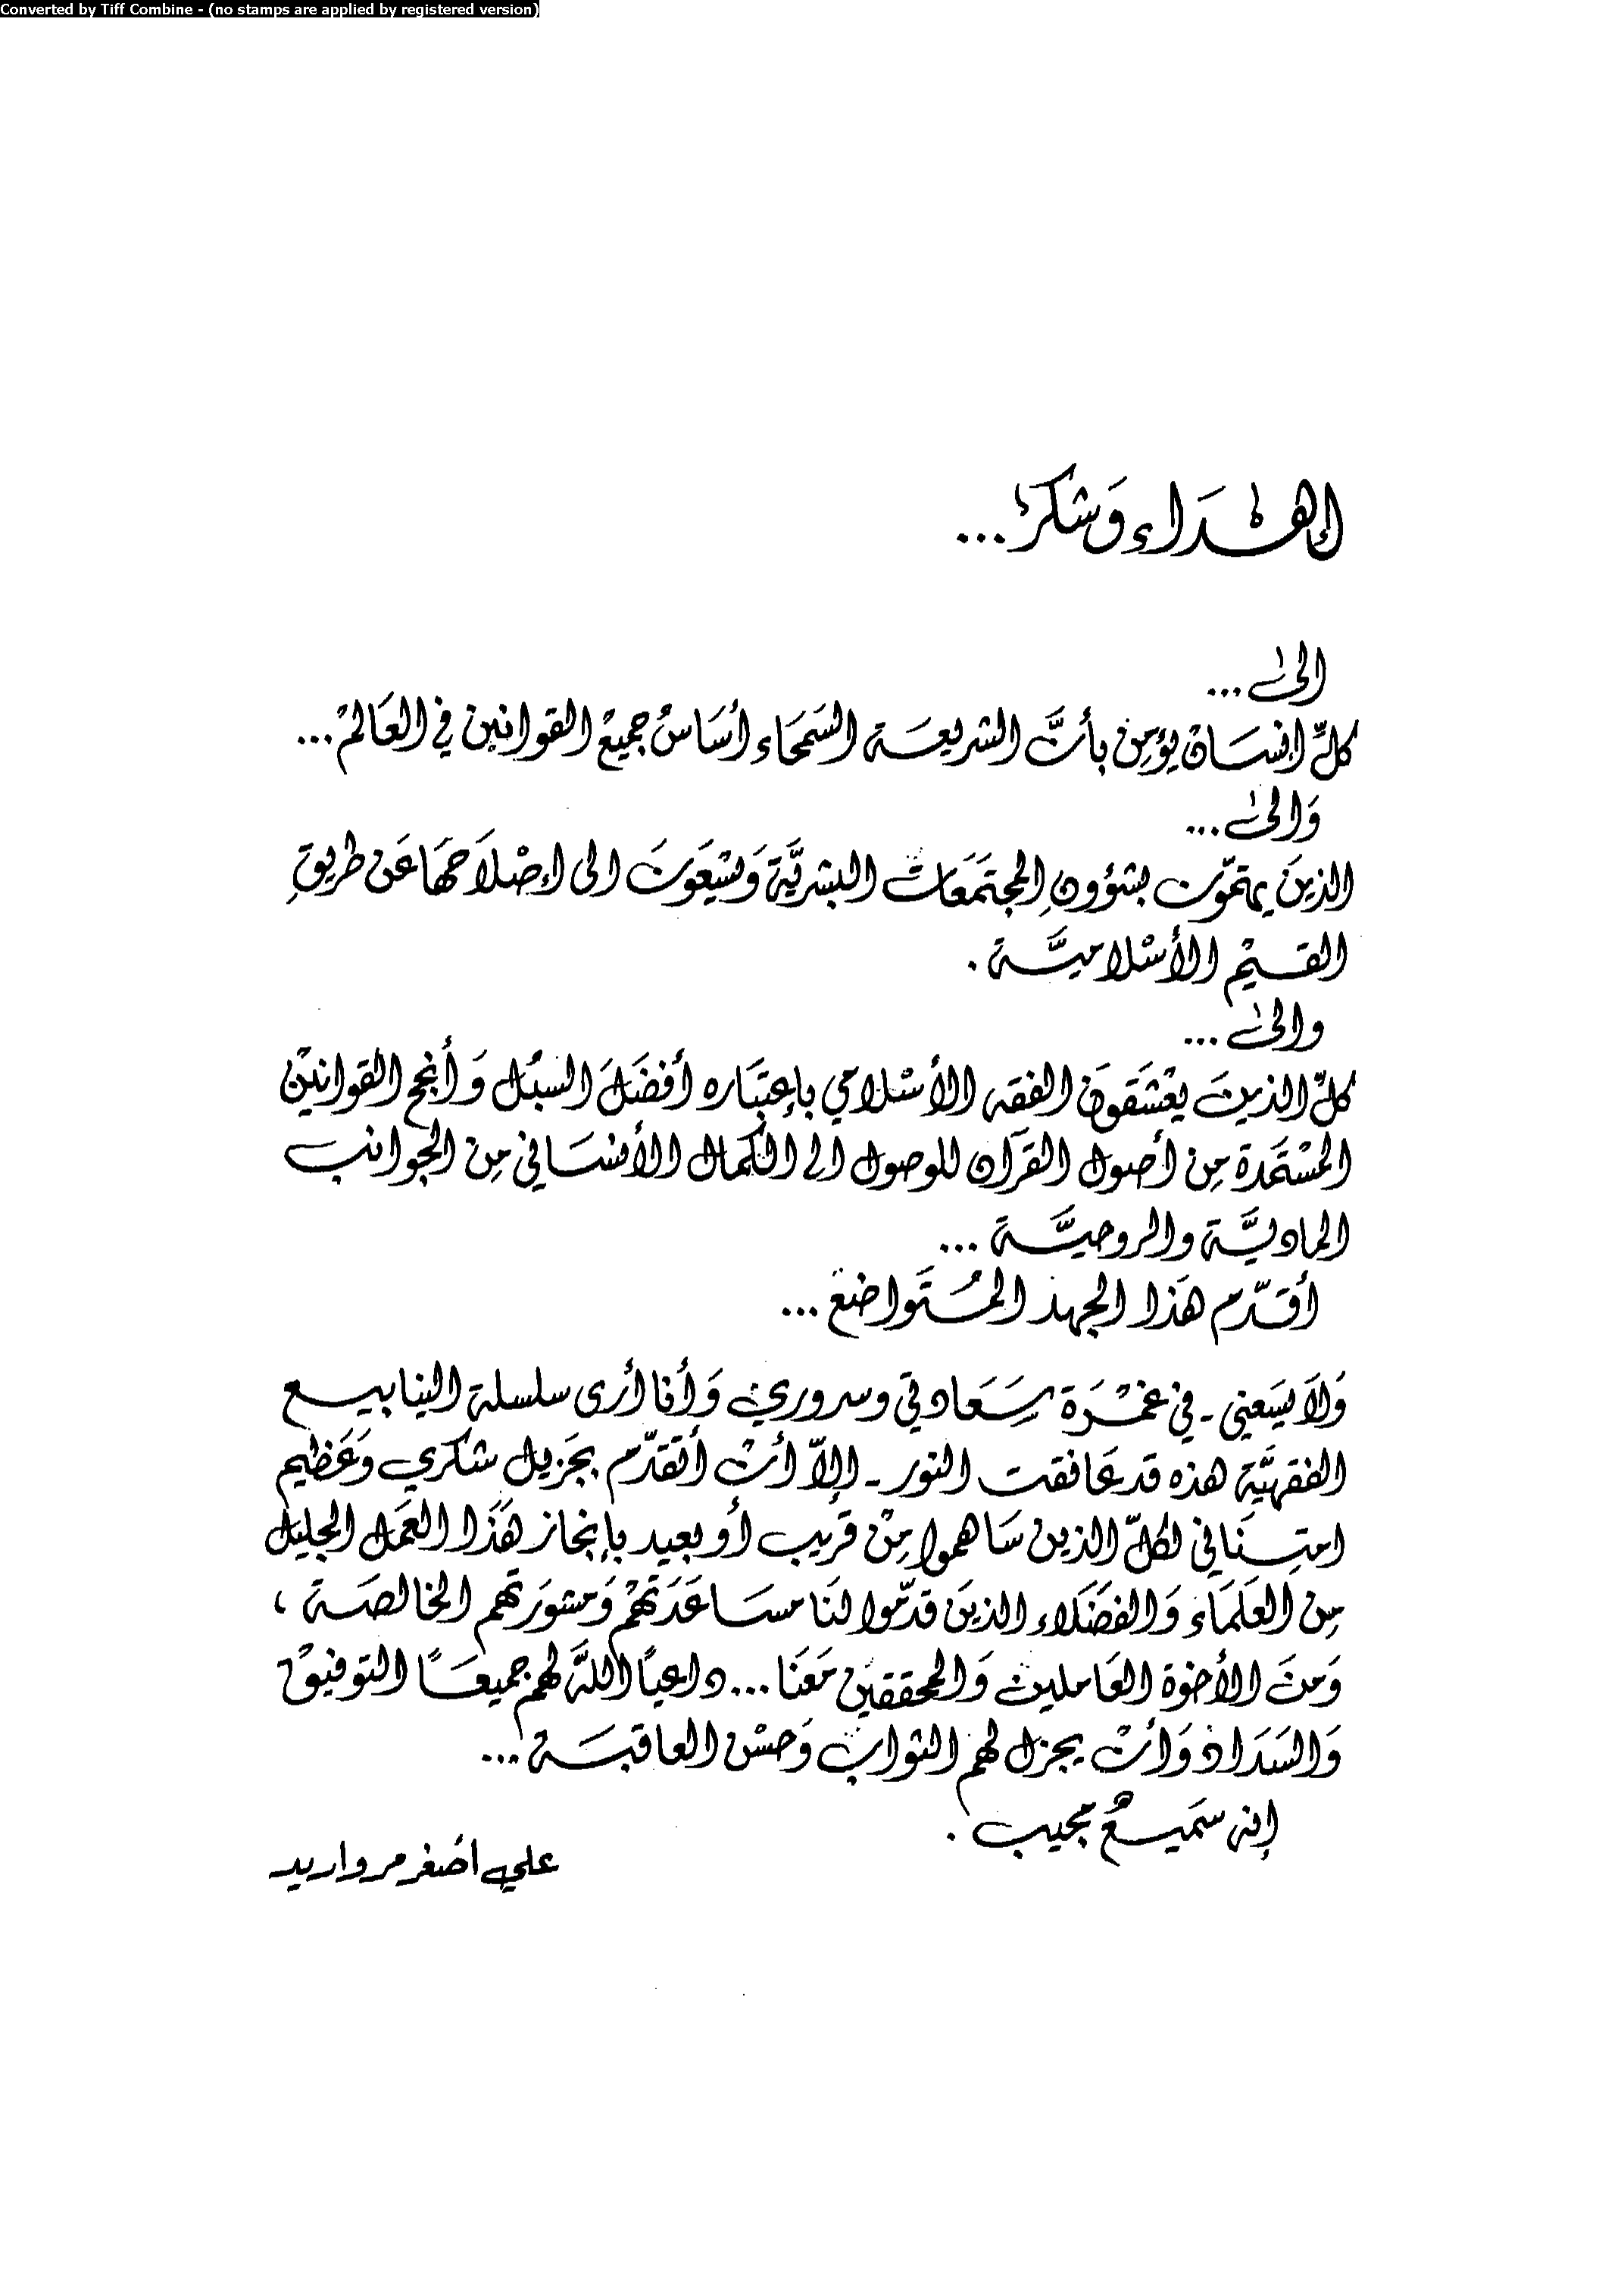 Converted by Tiff Combine - (no stamps are applied by registered version)
إهداء وَشكر ...
الىٰ ...
كلِّ انسَان يؤمِن بأنَّ الشريعَة السَمحَاء أسَاسُ جميع القوانين في العَالم ...
وَالىٰ ...
الذينَ يهتمّون بشؤونِ المجتَمَعَات البشريَّة وَيسْعَونَ الى إصْلاَحهَا عَن طريقِ
القيم الأسْلاميَّة .
والىٰ ...
كلِّ الذينَ يعْشَقونَ الفقه الأسْلامي بإعتبَاره أفضَلَ السبُل وَأنجح القوانين
المسْتَمدة مِن أصول القرآن للوصول الى الكمال الأنسَاني مِن الجوانب
الماديَّة والروحيَّة ...
أقدّم هَذا الجهد المُتَواضع ...
وَلاَ يسَعني - في غمْرَة سَعَادتي وسروري وَأنا أرى سلسلة الينابيع
الفقهيَّة هذه قد عَانقت النور - إلاّ أنْ أتقدّم بجَزيل شكري وَعَظيم
امتِنَاني لكلّ الذين سَاهموا مِنْ قريب أو بعيد بإنجاز هَذَا العمَل الجليل
مِن العلَمَاء وَالفضَلاء الذينَ قدّموا لنَا مسَاعَدَتهمْ وَمشورَتهم الخالصَة ،
وَمنَ الأخوة العَاملين وَالمحققين مَعَنا ... داعيًا اللَّه لهم جميعًا التوفيق
وَالسَدَاد وَأنْ يجزل لهم الثواب وَحسْن العاقبَة ...
إنه سَميعٌ مجيب .
علي اصغر مرواريد